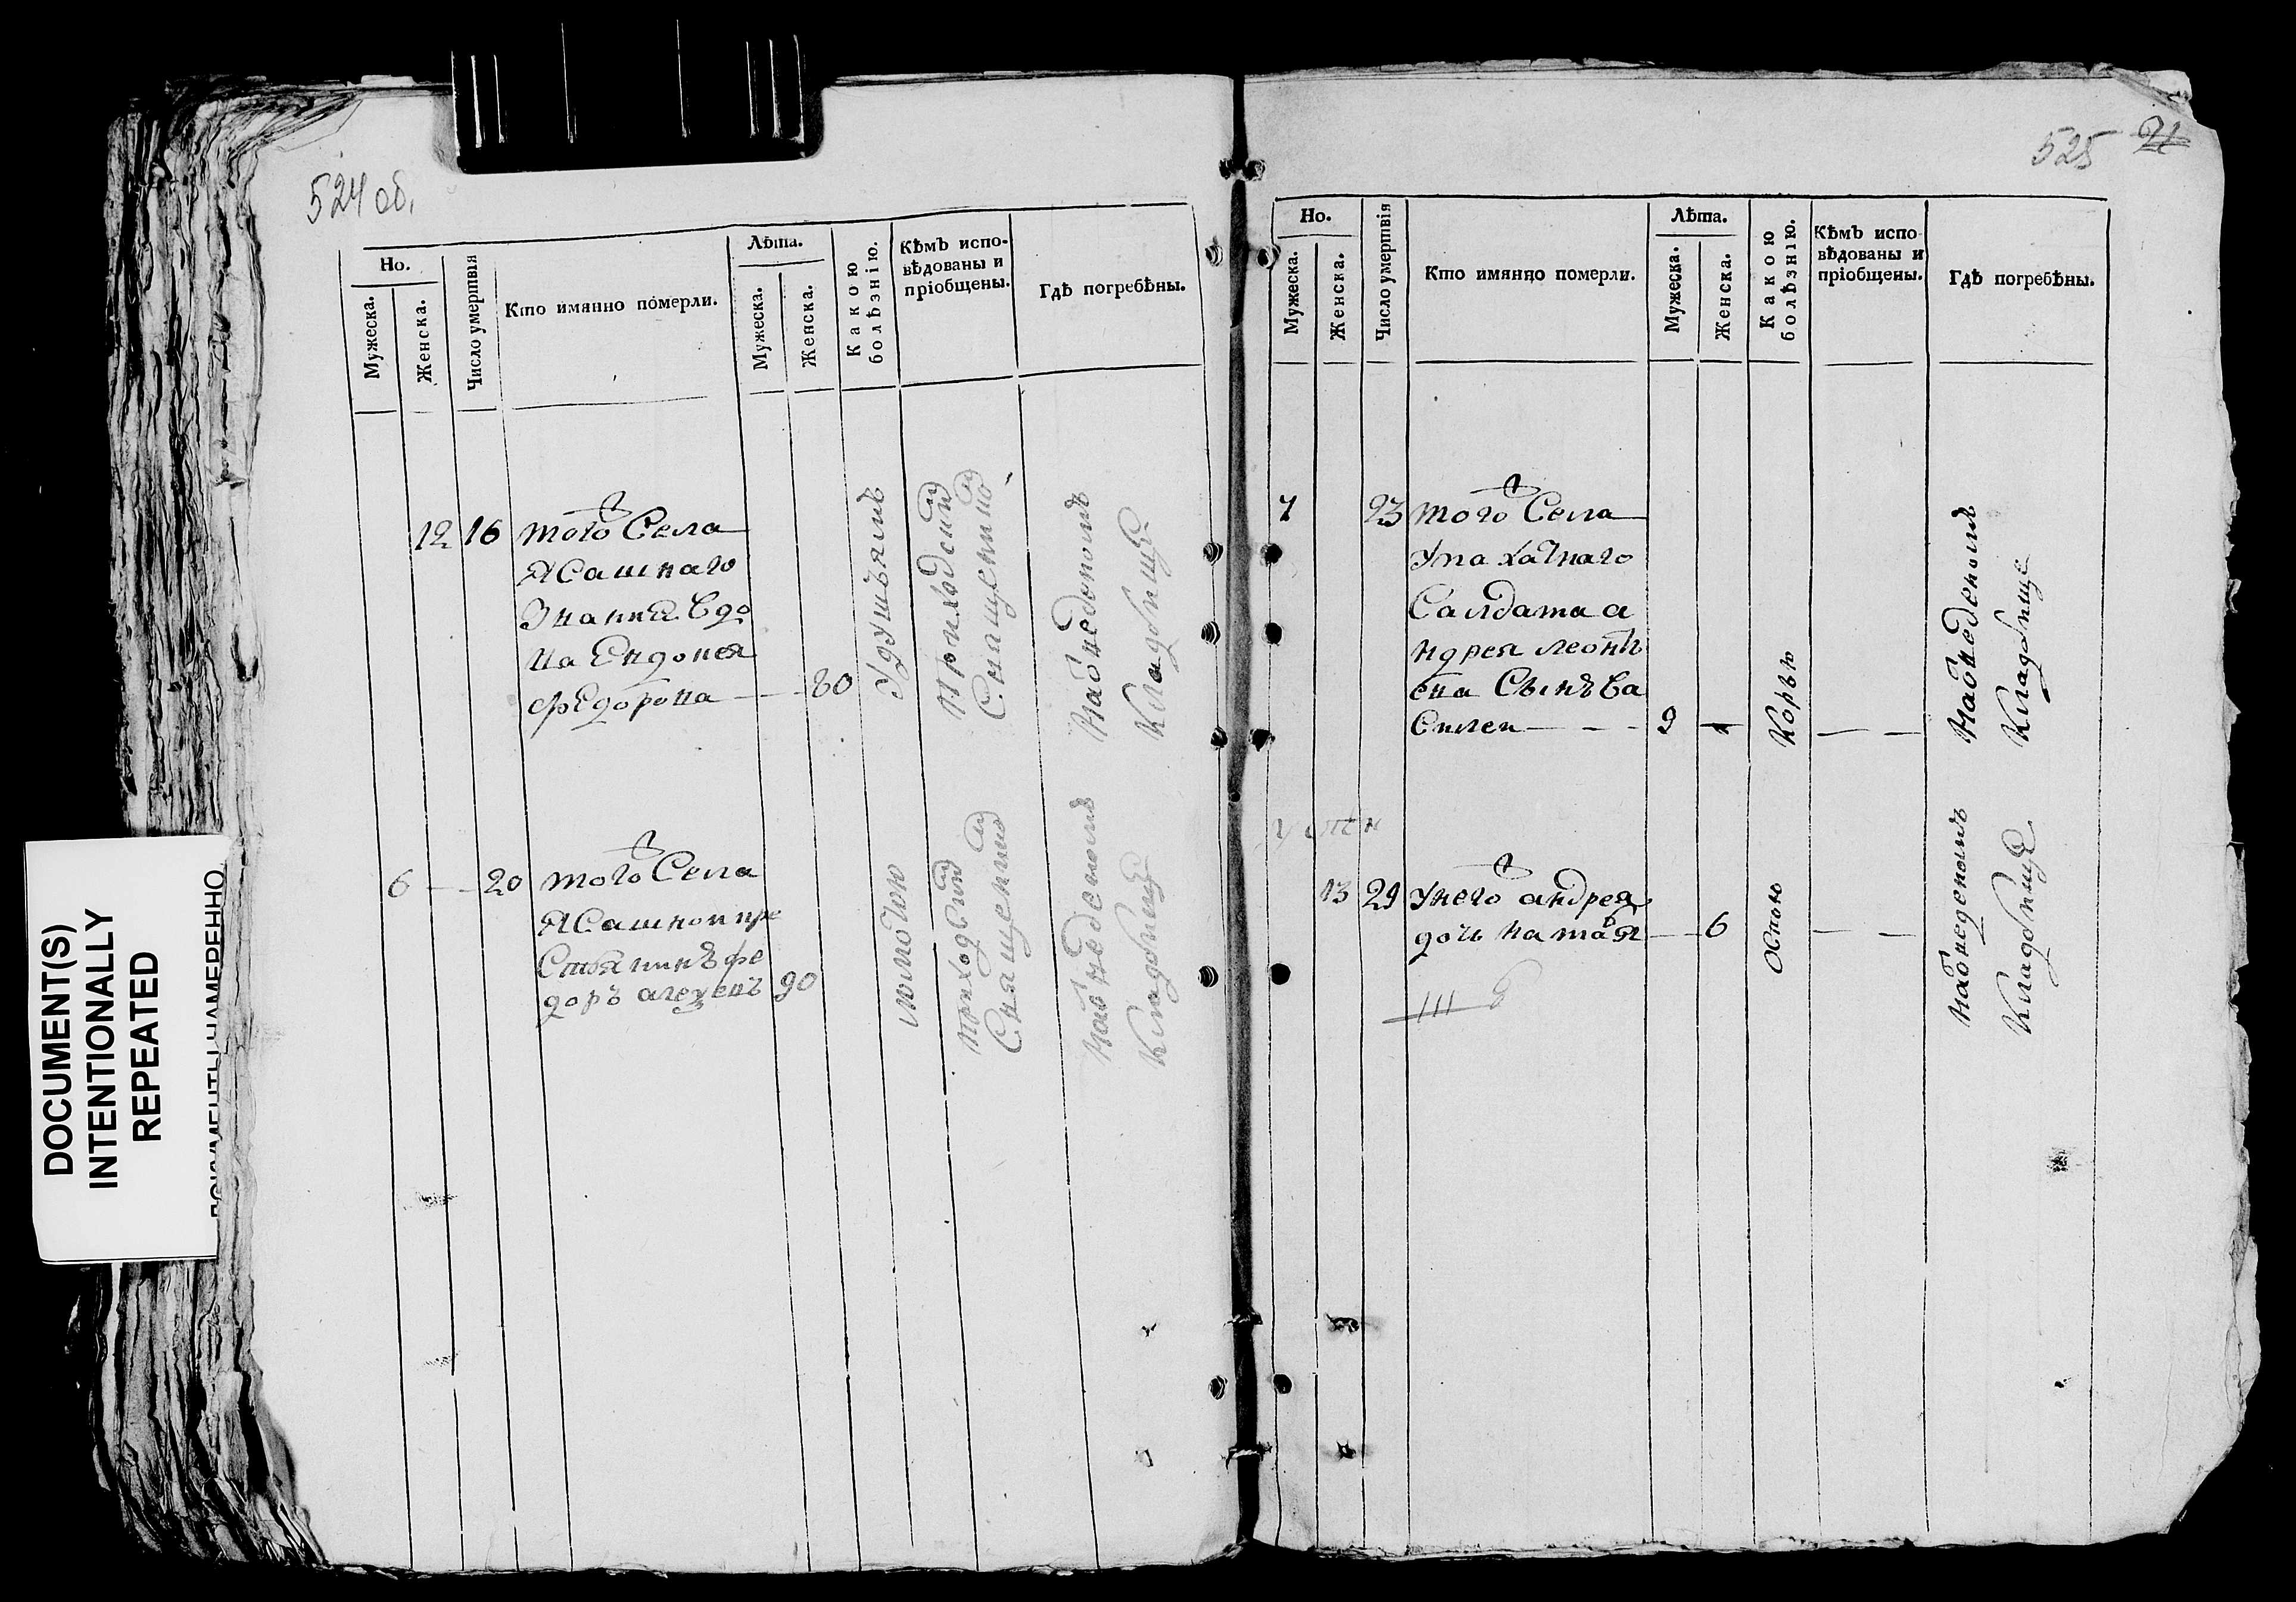 524 об.
Но.
Мужеска.
Женска.
Число умертвія
Кто имянно померли.
Лѣта.
Мужеска.
Женска.
Какою
болѣзнію.
Кѣмъ испо-
вѣдованы и
пріобщены.
Гдѣ погребѣны.
12 16 того Села
Ясашнаго
Званія вдо
ва Евдокея
Федорова — 80
Удушьямъ
Приходским
Священником
На отведеномъ
Кладбище
6 — 20 того Села
Ясашной кре
Стьянинъ Фе
доръ
90
Приходским
Священником
На отведеномъ
Кладбище
525 21
Но.
Мужеска.
Женска.
Число умертвія
Кто имянно померли.
Лѣта.
Мужеска.
Женска.
Какою
болѣзнію.
Кѣмъ испо
вѣдованы и
пріобщены.
Гдѣ погребѣны.
7 23 того Села
Салдата а
ндрея леонть
ева Сынъ Ва
Силей — — —
Корью
На отведеномъ
Кладбище
13 29 У него андрея
дочь — 6
Оспою
На отведеномъ
Кладбище
DOCUMENT(S)
INTENTIONALLY
REPEATED